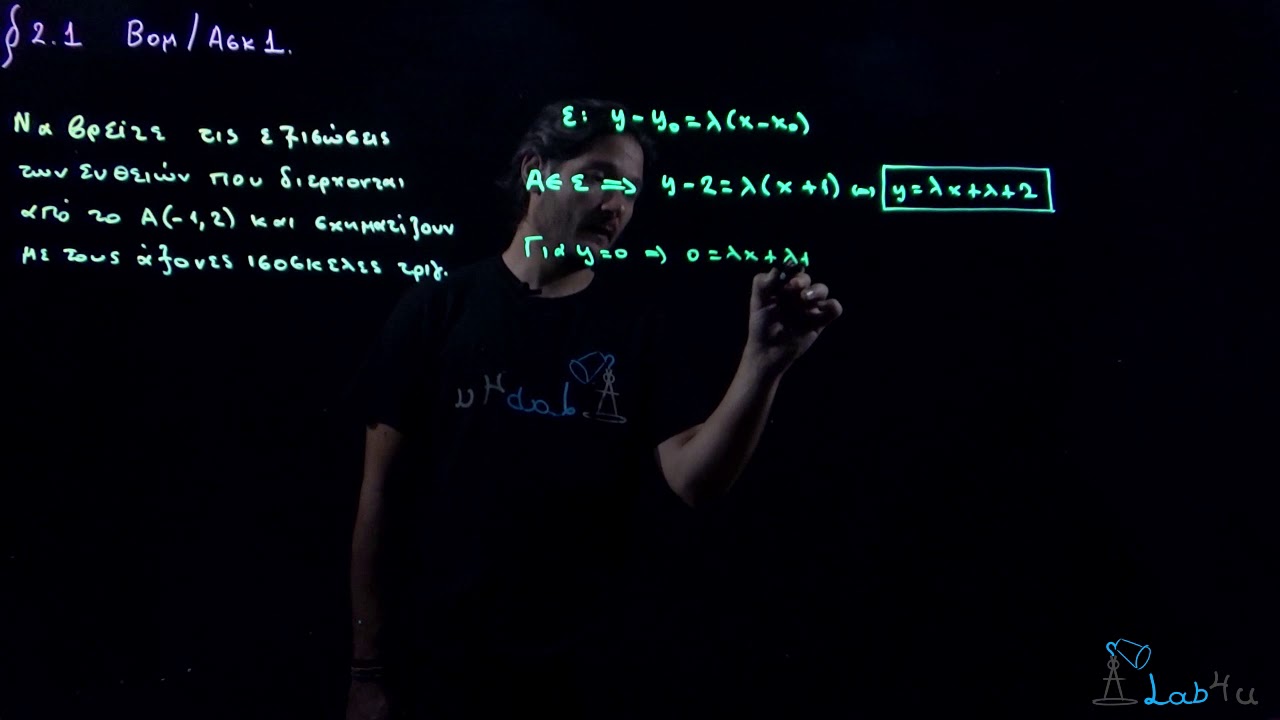 § 2.1 Βομ/Ασκ 1.
Να βρείτε τις εξισώσεις
των ευθειών που διέρχονται
από το Α(-1,2) και σχηματίζουν
με τους άξονες ισοσκελές τριγ.
ε: y-y₀=λ(x-x₀)
Α∈ε ⟹ y-2=λ(x+1) ⇔ y=λx+λ+2
Για y=0 ⇒ 0=λx+λ+
Lab4u
Lab4u